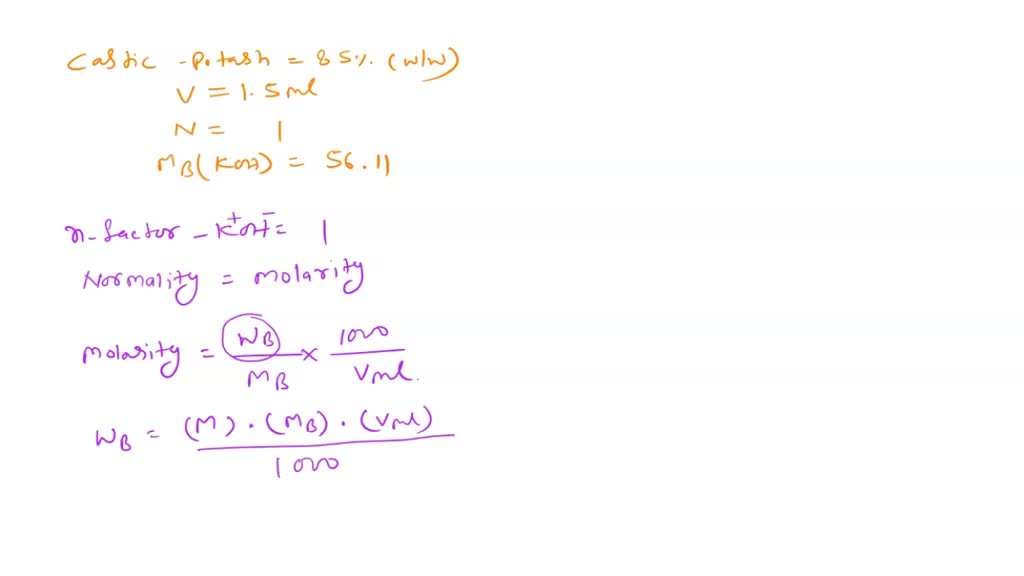 Castic - Potash = 85% (w/w)
V = 1.5 ml
N = 1
MB(KOH) = 56.11
n-factor - K⁺OH⁻ = 1
Normality = molarity
molarity = WB/MB × 1000/Vml.
WB = (M) · (MB) · (Vml)/1000